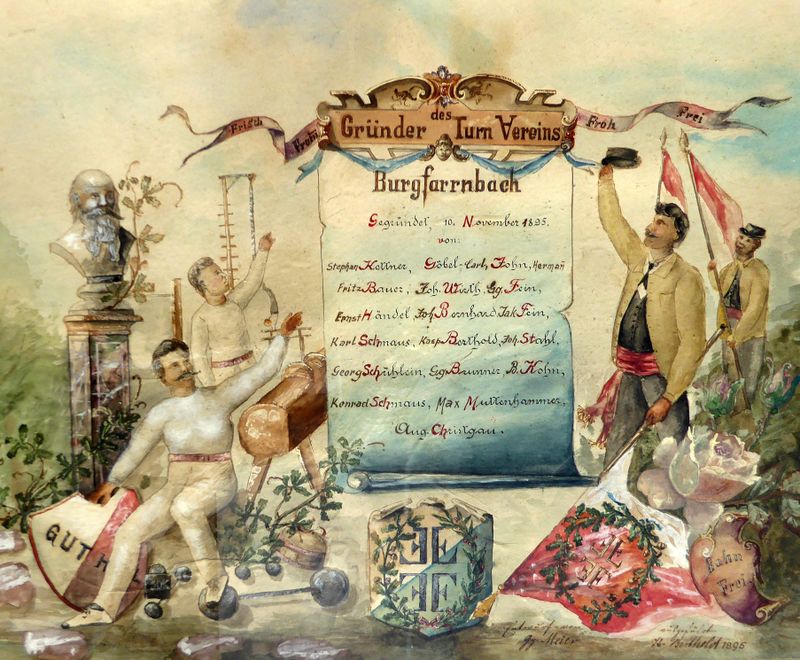 Frisch
Fromm
Froh
Frei
des
Gründer Turn Vereins
Burgfarrnbach
Gegründet, 10. November 1895.
von:
Stephan Kollner, Göbel-Carl, Hohn, Hermañ
Fritz Bauer, Joh. Wirth, Gg. Fein,
Ernst Händel, Joh Bernhard, Jak Fein,
Karl Schmaus, Kasp Berthold, Joh. Stahl,
Georg Schühlein, Gg. Brunner, B. Hohn,
Konrad Schmaus, Max Muttenhammer,
Aug. Christgau.
GUT H
Bahn
Frei
Gg. Meier
Berthold 1895